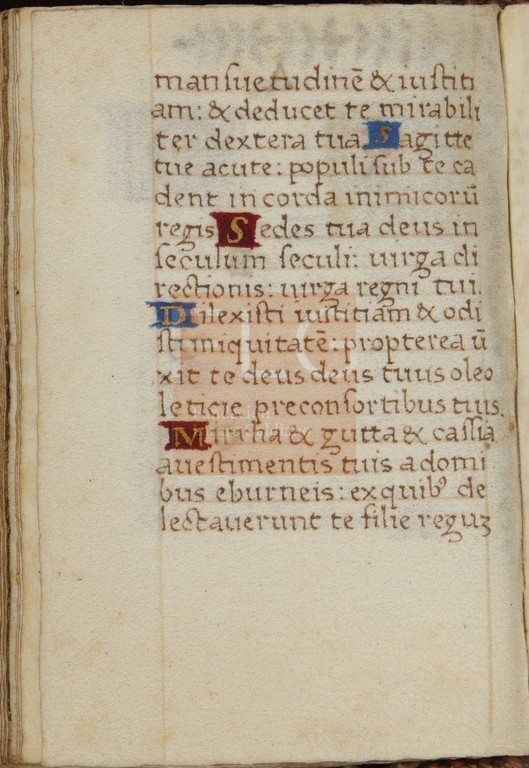 mansuetudinē & iustiti
am: & deducet te mirabili
ter dextera tua Sagitte
tue acute: populi sub te ca
dent in corda inimicorū
regis Sedes tua deus in
seculum seculi: uirga di
rectionis: uirga regni tui.
Dilexisti iustitiam & odi
sti iniquitatē: propterea ū
xit te deus deus tuus oleo
leticie pre consortibus tuis.
Mirrha & gutta & cassia
a uestimentis tuis a domi
bus eburneis: ex quibꝰ de
lectauerunt te filie regūꝫ